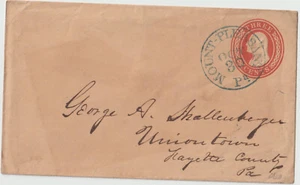 THREE
MOUNT-PLEASANT
Pa
George A. Shallenberger
Uniontown
Fayette County
Pa